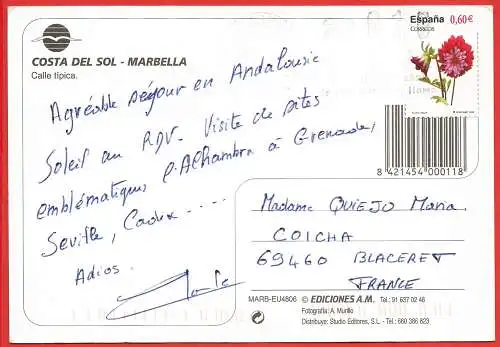 España 0,60€
CORREOS
COSTA DEL SOL - MARBELLA
Calle típica.
Agréable séjour en Andalousie
Soleil au RDV. Visite de sites
emblématiques l'Alhambra à Grenade,
Seville, Cadix ....
Adios.
8 421454 000118
Madame QUIEJO Maria
COICHA
69460 BLACERET
FRANCE
MARB-EU4806 © EDICIONES A.M. Tel: 91 637 02 46
Fotografía: A. Murillo
Distribuye: Studio Editores, S.L. - Tel: 660 386 823